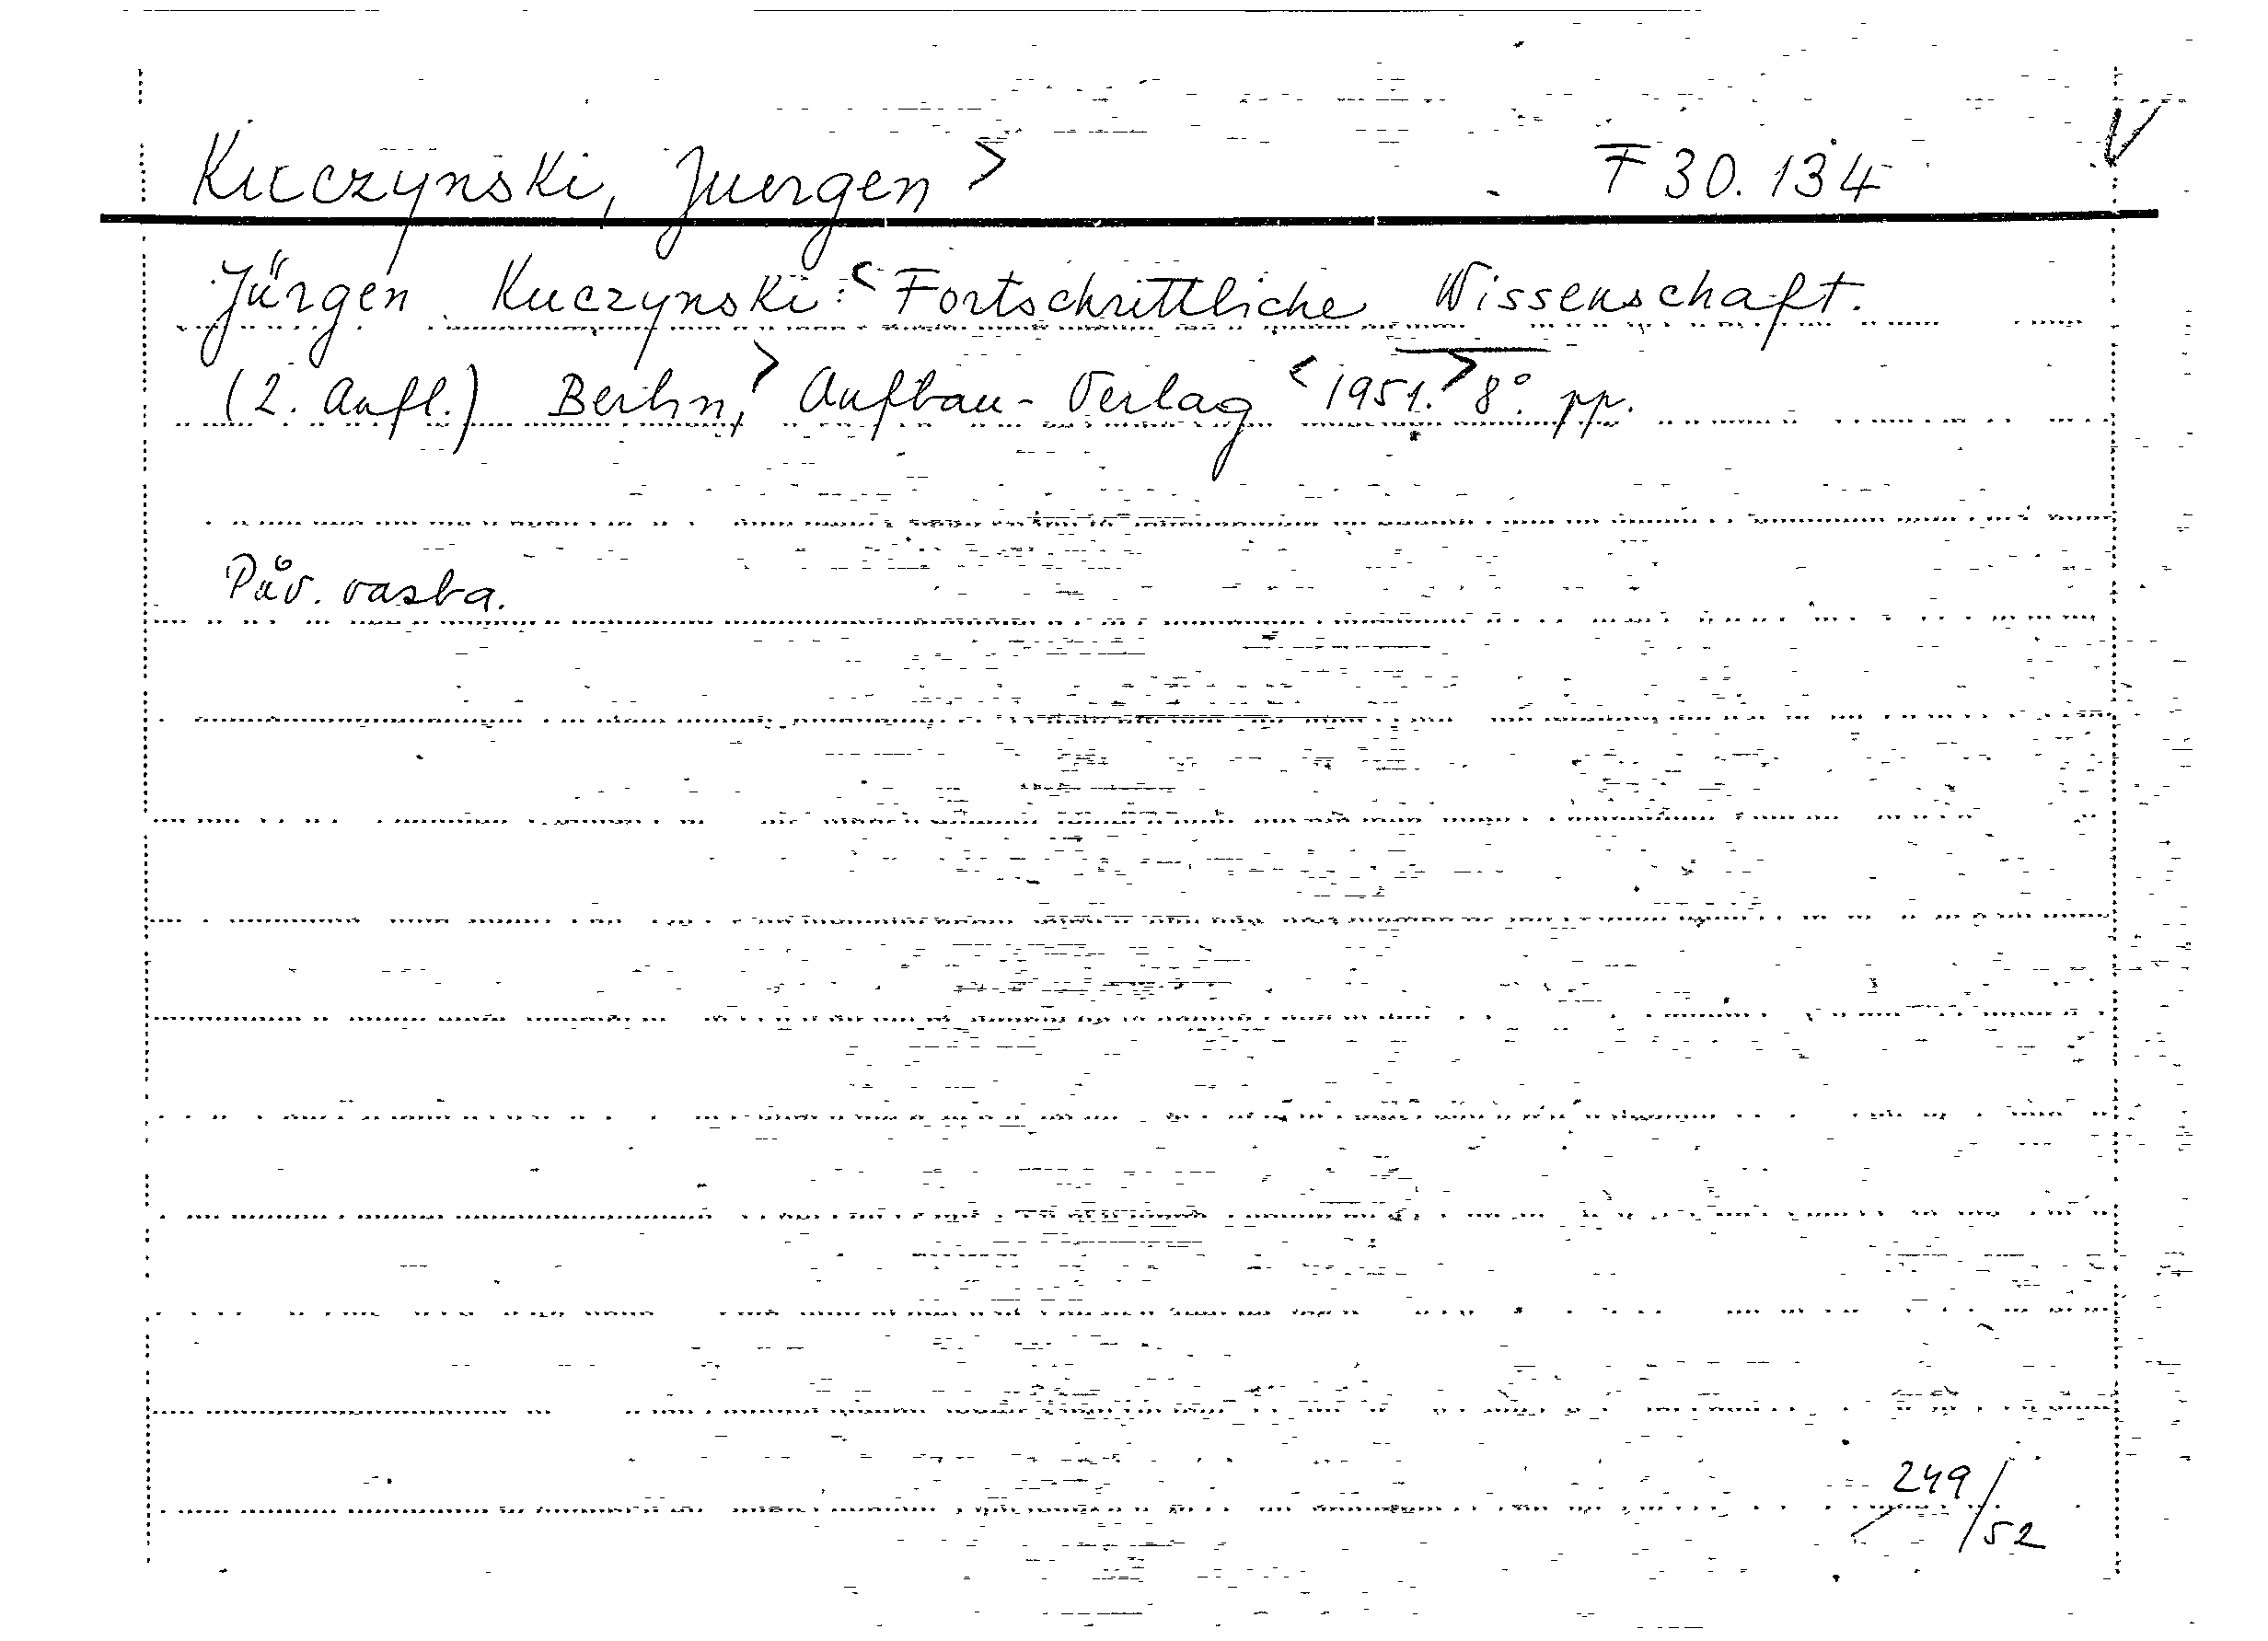 Kuczynski, Juergen> F 30.134 V
Jürgen Kuczynski: <Fortschrittliche Wissenschaft.
(2. Aufl.) Berlin,> Aufbau-Verlag <1951.> 8° pp.
Pův. vazba.
249/52